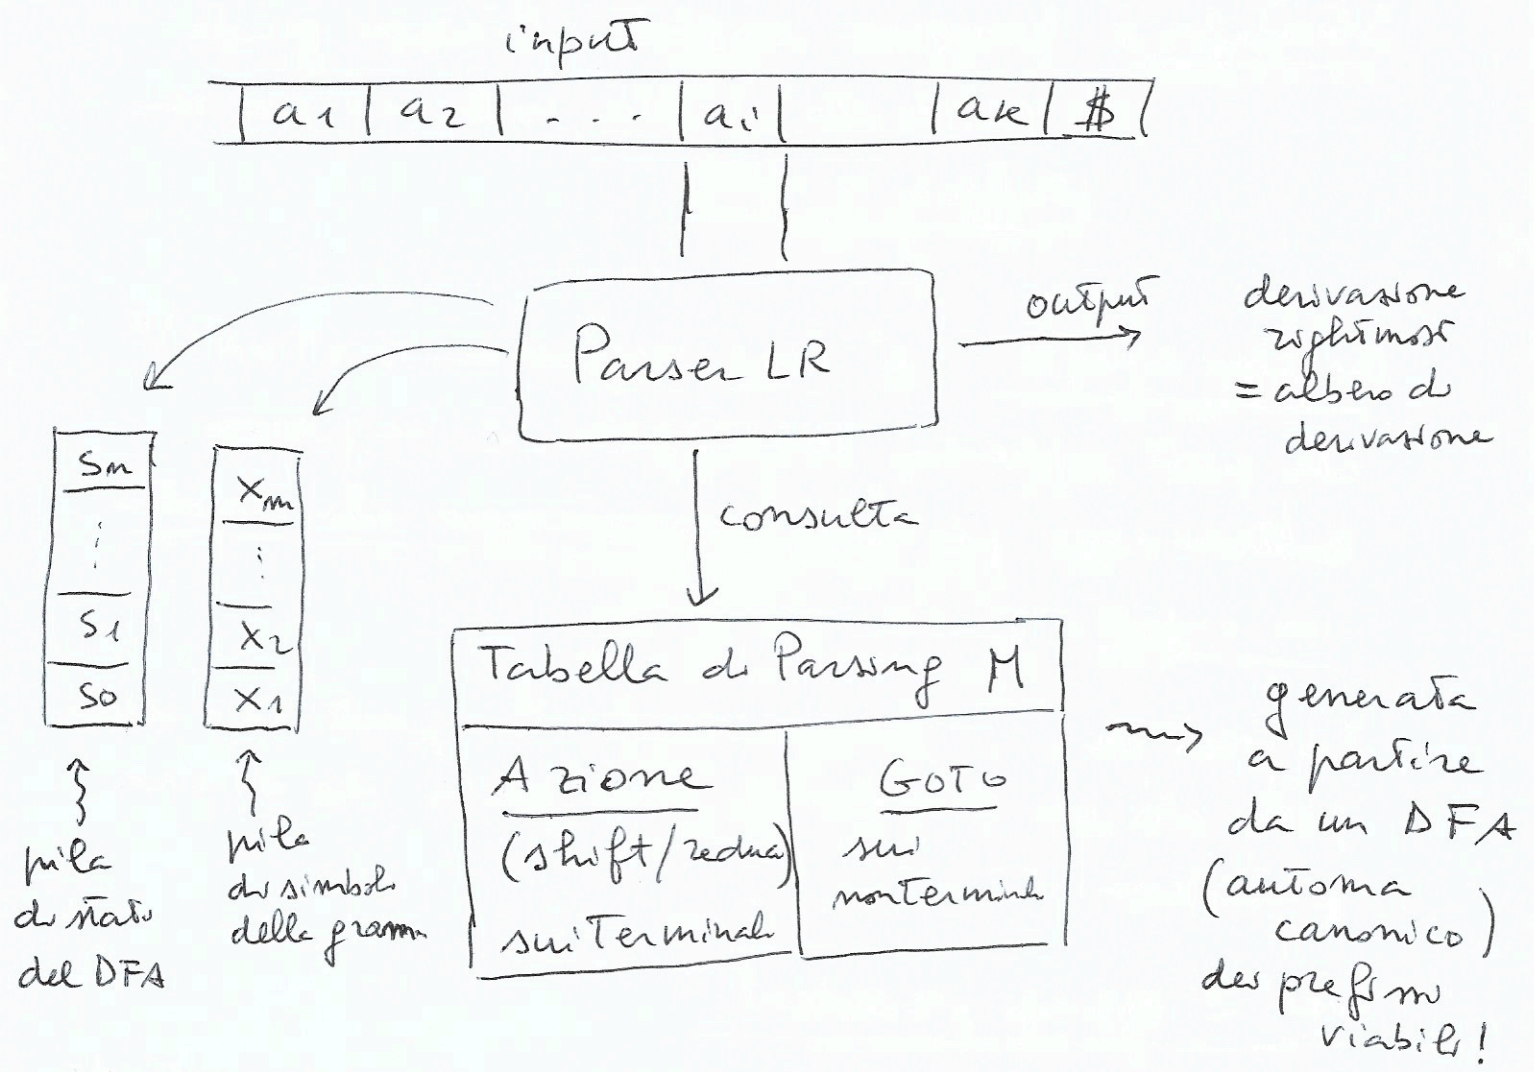 input
a1 a2 ... ai ak $
Parser LR
output
derivazione
rightmost
= albero di
derivazione
Sm
⋮
S1
S0
Xm
⋮
X2
X1
consulta
Tabella di Parsing M
Azione
(shift/reduce)
sui terminali
GOTO
sui
nonterminali
generata
a partire
da un DFA
(automa
canonico)
dei prefissi
viabili!
pila
di stati
del DFA
pila
di simboli
della gramm